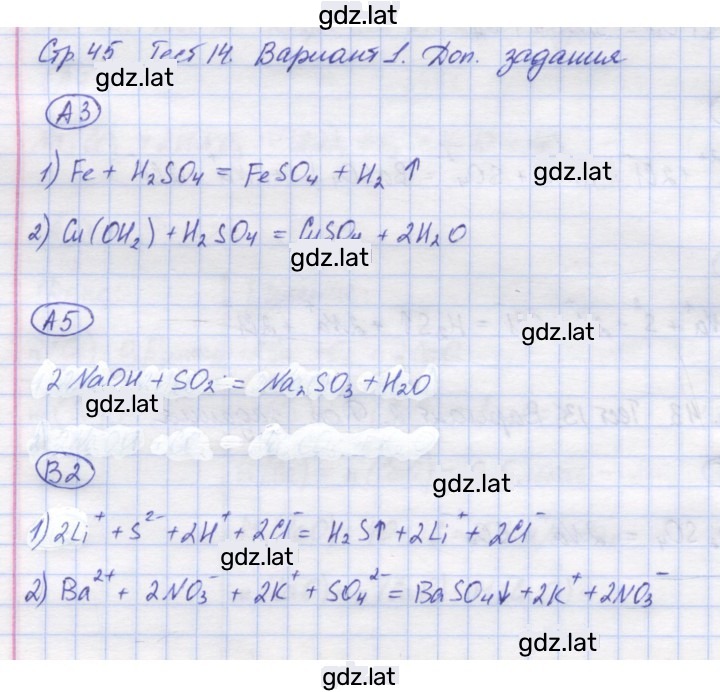 gdz.lat
Стр 45 Тест 14. Вариант 1. Доп. задания
gdz.lat
А3
1) Fe + H₂SO₄ = FeSO₄ + H₂ ↑
gdz.lat
2) Cu(OH₂) + H₂SO₄ = CuSO₄ + 2H₂O
gdz.lat
А5
gdz.lat
2 NaOH + SO₂ = Na₂SO₃ + H₂O
gdz.lat
В2
gdz.lat
1) 2Li⁺ + S²⁻ + 2H⁺ + 2Cl⁻ = H₂S↑ + 2Li⁺ + 2Cl⁻
gdz.lat
2) Ba²⁺ + 2NO₃⁻ + 2K⁺ + SO₄²⁻ = BaSO₄↓ + 2K⁺ + 2NO₃⁻
gdz.lat
gdz.lat